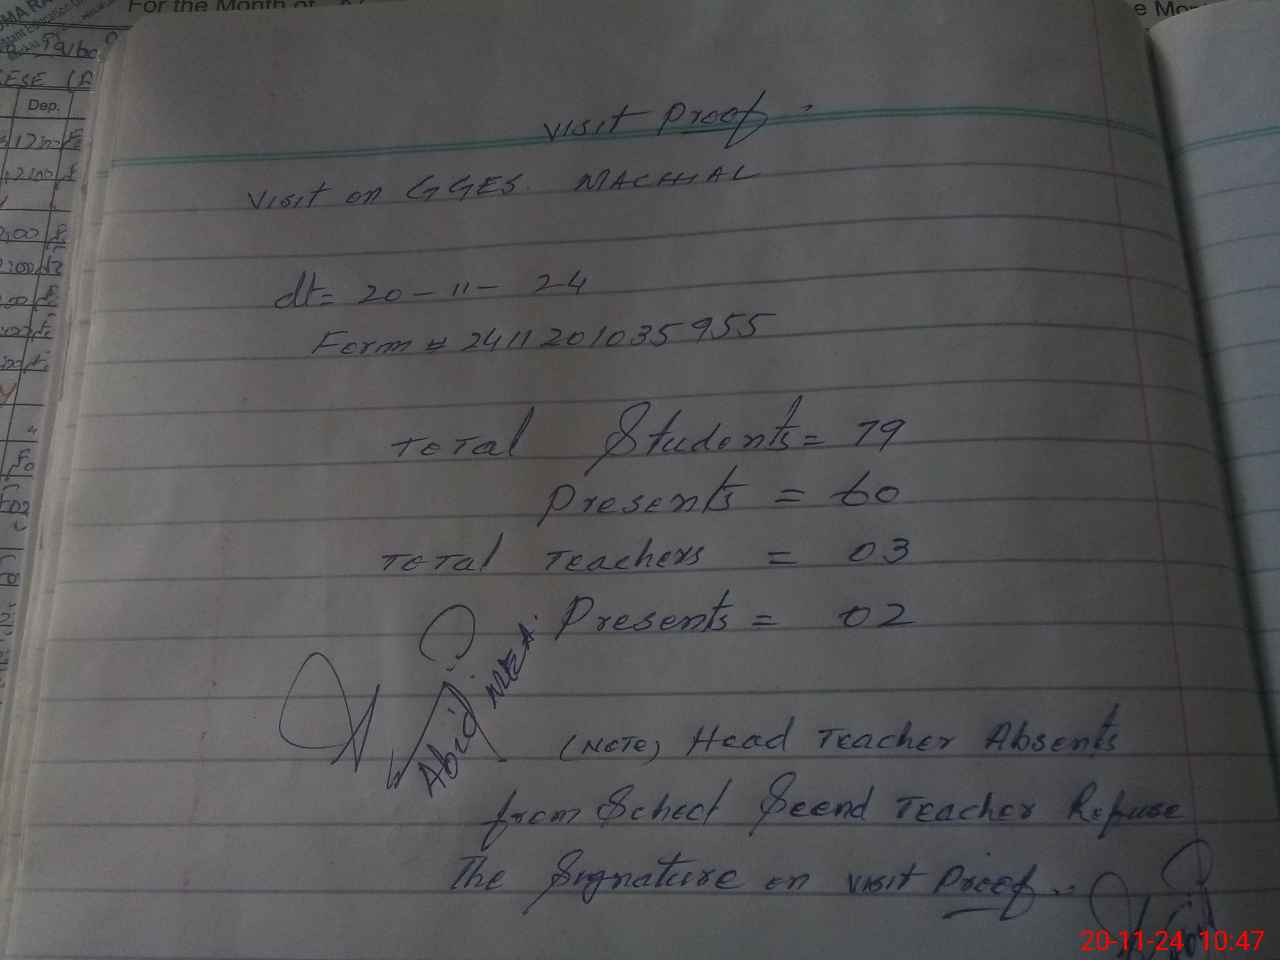 For the Month of
e Mon
Dep.
Visit Proof
Visit on GGES. MACHHAL
dt= 20-11-24
Form # 2411201035955
Total Students = 79
Presents = 60
Total Teachers = 03
Presents = 02
Abid MEA.
(Note) Head Teacher Absents
from School Secend Teacher Refuse
The Signature on visit Proof.
20-11-24 10:47